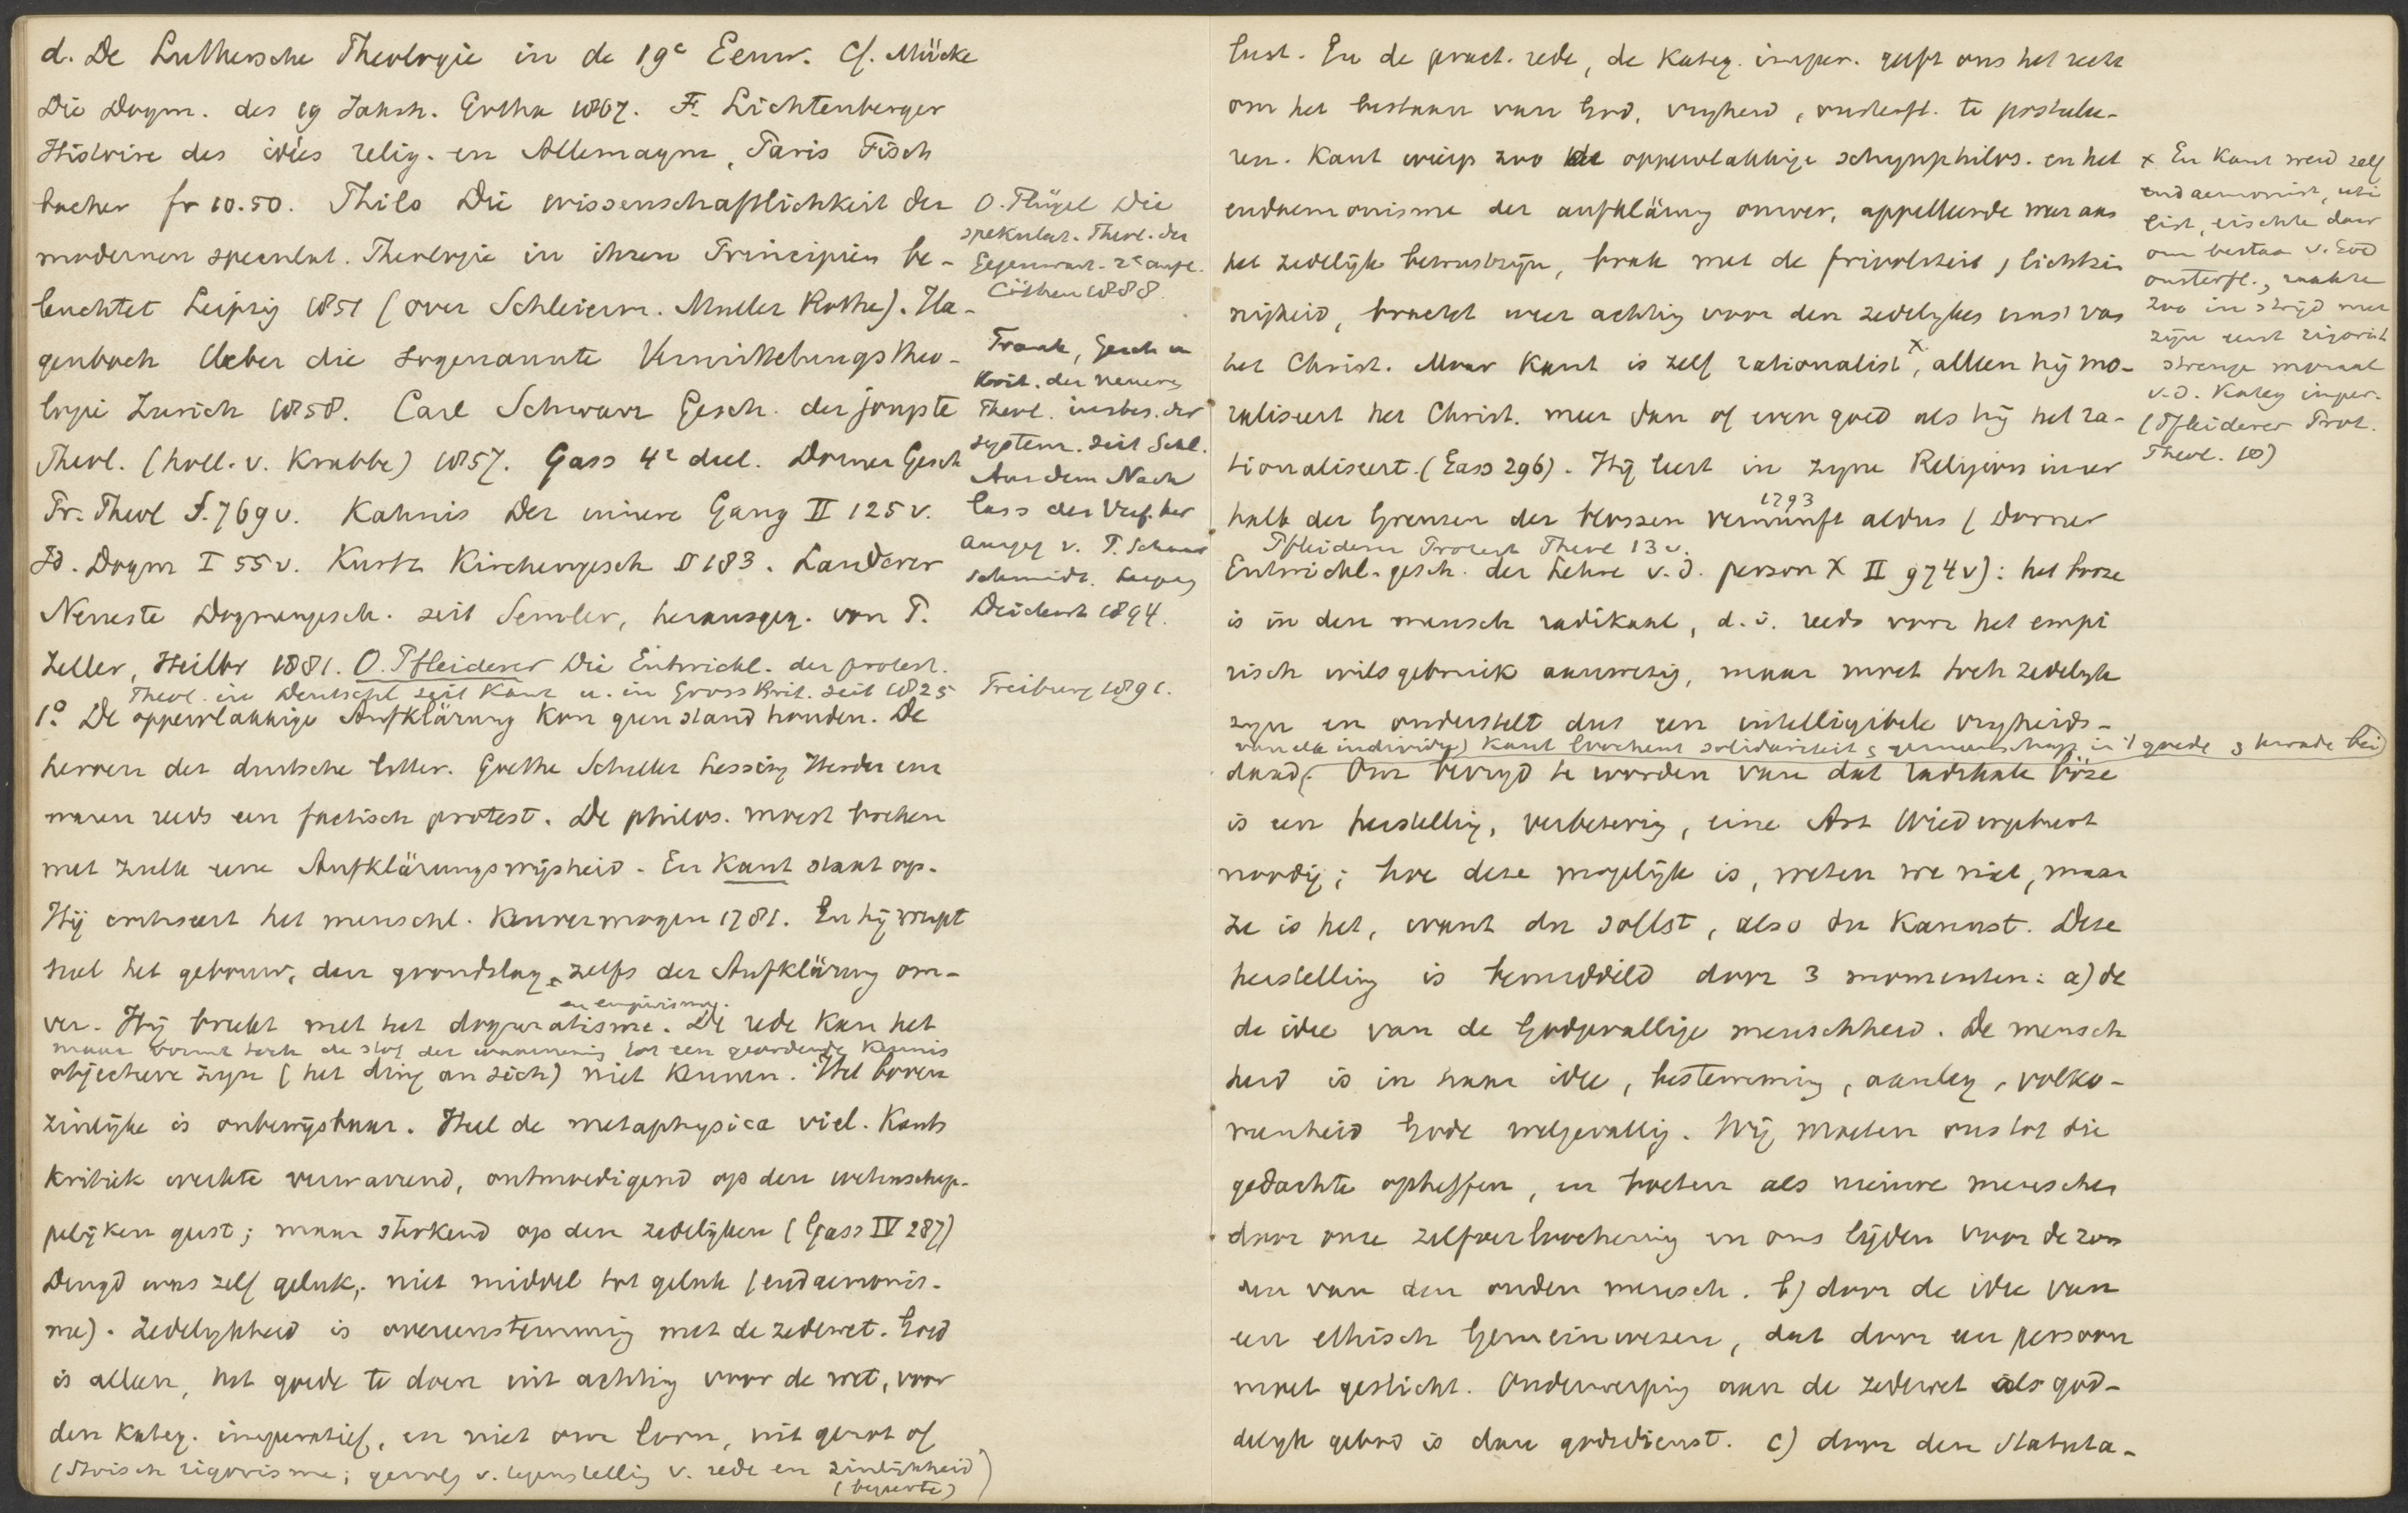 d. De Luthersche Theologie in de 19e Eeuw. Cf. Mücke
Die Dogm. des 19 Jahrh. Gotha 1867. F. Lichtenberger
Histoire des idées relig. en Allemagne, Paris Fisch
bacher fr 10.50. Thilo Die wissenschaftlichkeit der
modernen speculat. Theologie in ihren Principien be-
leuchtet Leipzig 1851 (over Schleierm. Muller Rothe). Ha-
genbach Ueber die sogenannte Vermittelungstheo-
logie Zurich 1858. Carl Schwarz Gesch. der jongste
Theol. (holl. v. Krabbe) 1857. Gass 4e deel. Dorner Gesch
Pr. Theol S. 769 v. Kahnis Der innere Gang II 125 v.
Id. Dogm I 55 v. Kurtz Kirchengesch § 183. Landerer
Neueste Dogmengesch. seit Semler, herausgeg. von P.
Zeller, Heilbr 1881. O. Pfleiderer Die Entwickl. der protest.
Theol. in Deutschl seit Kant u. in Gross Brit. seit 1825
O. Flügel Die
spekulat. Theol. der
Gegenwart. 2e aufl.
Cöthen 1888.
Frank, Gesch u
Krit. der neueren
Theol. insbes. der
system. seit Schl.
Aus dem Nach
lass des Verf. her
ausgeg v. P. Schaar
schmidt. Leipzig
Deichert 1894.
Freiburg 1891.
1o. De oppervlakkige Aufklärung kon geen stand houden. De
heroen der duitsche letter. Goethe Schiller Lessing Herder enz
waren reeds een factisch protest. De philos. moest breken
met zulk eene Aufklärungswijsheid. En Kant staat op.
Hij critiseert het menschl. kenvermogen 1781. En hij werpt
heel het gebouw, den grondslag zelfs der Aufklärung om-
ver. Hij breekt met het dogmatisme en empirisme. De rede kan het
maar vormt toch de stof der waarneming tot een geordende kennis
objectieve zijn (het ding an sich) niet kennen. Het boven
zinlijke is onbewijsbaar. Heel de metaphysica viel. Kants
kritiek werkte verwarrend, ontmoedigend op den wetenschap-
pelijken geest; maar sterkend op den zedelijken (Gass IV 287)
Deugd was zelf geluk, niet middel tot geluk (eudaemonis-
me). Zedelykheid is overeenstemming met de zedewet. Goed
is alleen, het goede te doen uit achting voor de wet, voor
den kateg. imperatief, en niet om loon, uit genot of
(Stoisch rigorisme; gevolg v. tegenstelling v. rede en zinlijkheid)
(begeerte)
lust. En de pract. rede, de kateg. imper. geeft ons het recht
om het bestaan van God, vryheid, onsterfl. te postulee-
ren. Kant wierp zoo de oppervlakkige schynphilos. en het
eudaemonisme der aufklärung omver, appelleerde weer aan
het zedelijk bewustzijn, brak met de frivoliteit, lichtzin
nigheid, bracht weer achting voor den zedelyken ernst van
het Christ. Maar Kant is zelf rationalist x, alleen hij mo-
raliseert het Christ. meer dan of even goed als hij het ra-
tionaliseert. (Gass 296). Hij leert in zyne Religion inner
halb der Grenzen der blossen Vernunft 1793 aldus (Dorner
Pfleiderer Protest Theol 13 v.
Entwickl. gesch. der Lehre v. d. person X II 974 v): het boze
is in den mensch radikaal, d. i. reeds voor het empi
risch wilsgebruik aanwezig, maar moet toch zedelyk
zyn en onderstelt dus een intelligibele vryheids-
van elk individu) Kant loochent solidariteit & gemeenschap in 't goede &
daad. Om bevryd te worden van dat radikale böse
is een herstelling, verbetering, eine Art Wiedergeburt
noodig; hoe deze mogelijk is, weten we niet, maar
ze is het, want du sollst, also du kannst. Deze
herstelling is bemiddeld door 3 momenten: a) de
de idee van de Godgevallige menschheid. De mensch
heid is in haar idee, bestemming, aanleg, volko-
menheid Gode welgevallig. Wij moeten ons tot die
gedachte opheffen, en boeten als nieuwe menschen
door onze zelfverloochening en ons lijden voor de zon
den van den ouden mensch. b) door de idee van
een ethisch Gemeinwesen, dat door een persoon
moet gesticht. Onderwerping aan de zedewet als god-
delyk gebod is dan godsdienst. c) door den Statuta-
x En Kant werd zelf
eudaemonist, uti
list, eischte daar
om bestaan v. God
onsterfl., raakte
zoo in strijd met
zijn eerst rigorist
strenge moraal
v. d. kateg imper.
(Pfleiderer Prot.
Theol. 10)